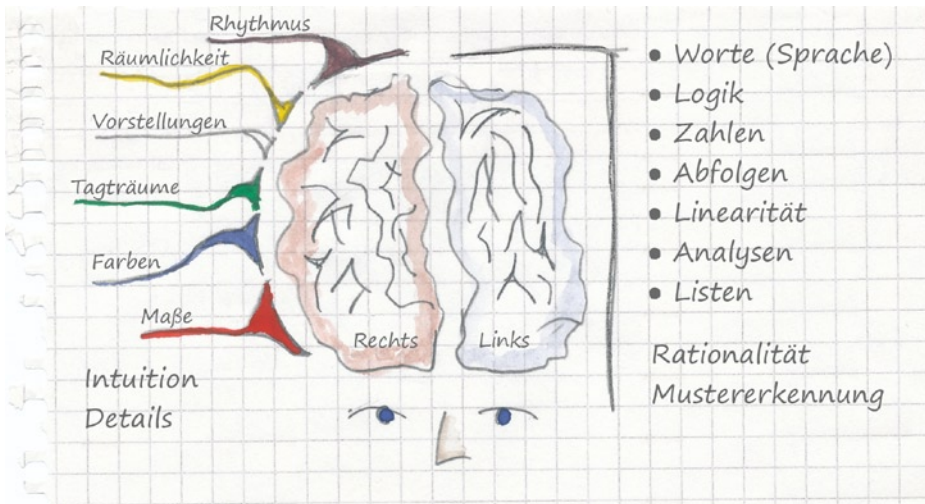 Rhythmus
Räumlichkeit
Vorstellungen
Tagträume
Farben
Maße
Intuition
Details
Rechts
Links
• Worte (Sprache)
• Logik
• Zahlen
• Abfolgen
• Linearität
• Analysen
• Listen
Rationalität
Mustererkennung